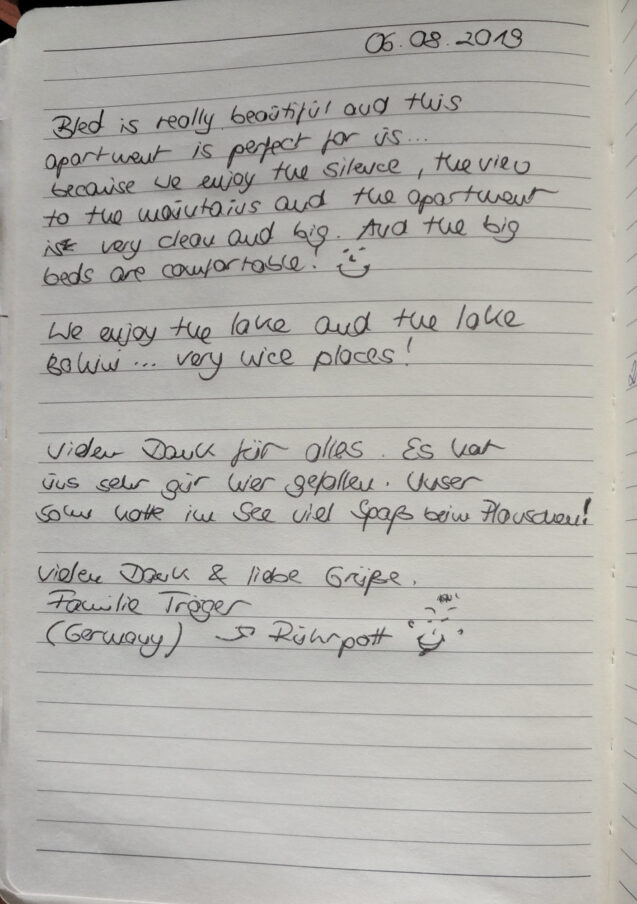 06.08.2019
Bled is really beautiful and this
apartment is perfect for us...
because we enjoy the silence, the view
to the mountains and the apartment
is very clean and big. And the big
beds are comfortable!
We enjoy the lake and the lake
Bohin... very nice places!
Vielen Dank für alles. Es hat
uns sehr gut hier gefallen. Unser
Sohn hatte im See viel Spaß beim Planschen!
Vielen Dank & liebe Grüße.
Familie Träger
(Germany) → Ruhrpott